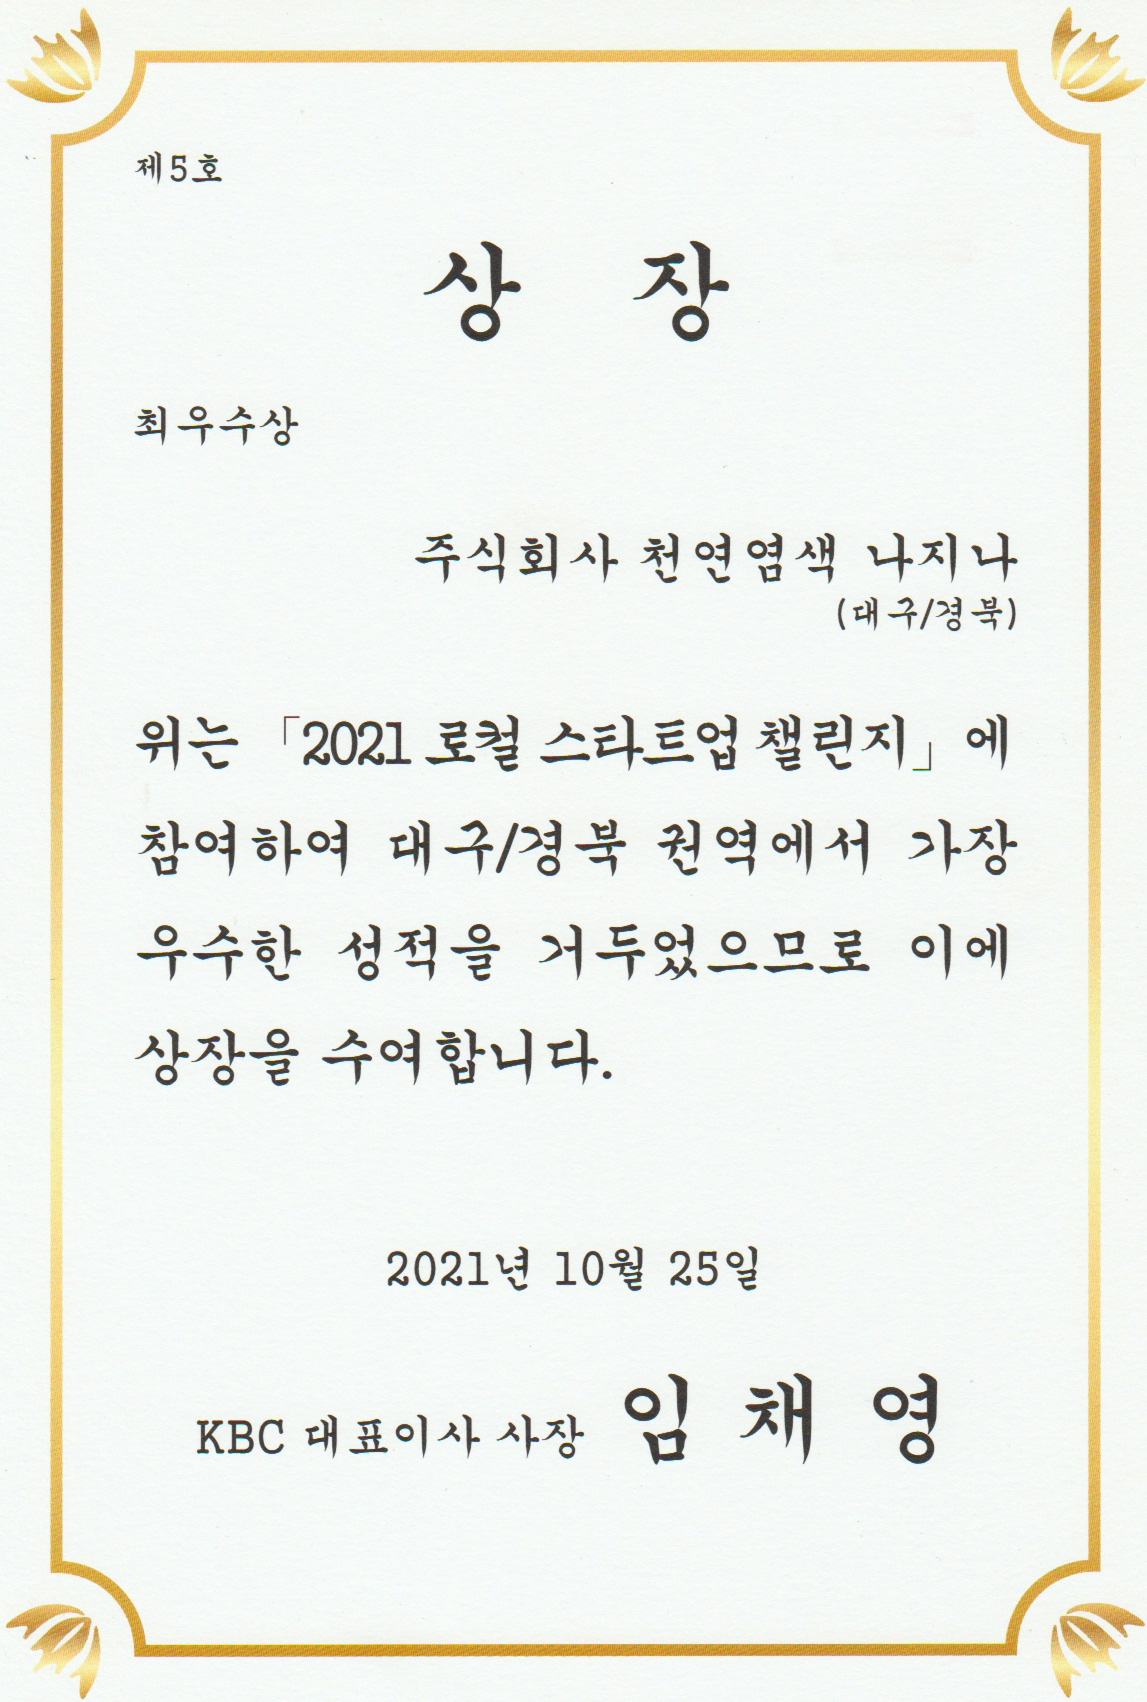 제5호
상 장
최우수상
주식회사 천연염색 나지나
(대구/경북)
위는 「2021 로컬 스타트업 챌린지」에
참여하여 대구/경북 권역에서 가장
우수한 성적을 거두었으므로 이에
상장을 수여합니다.
2021년 10월 25일
KBC 대표이사 사장 임 채 영